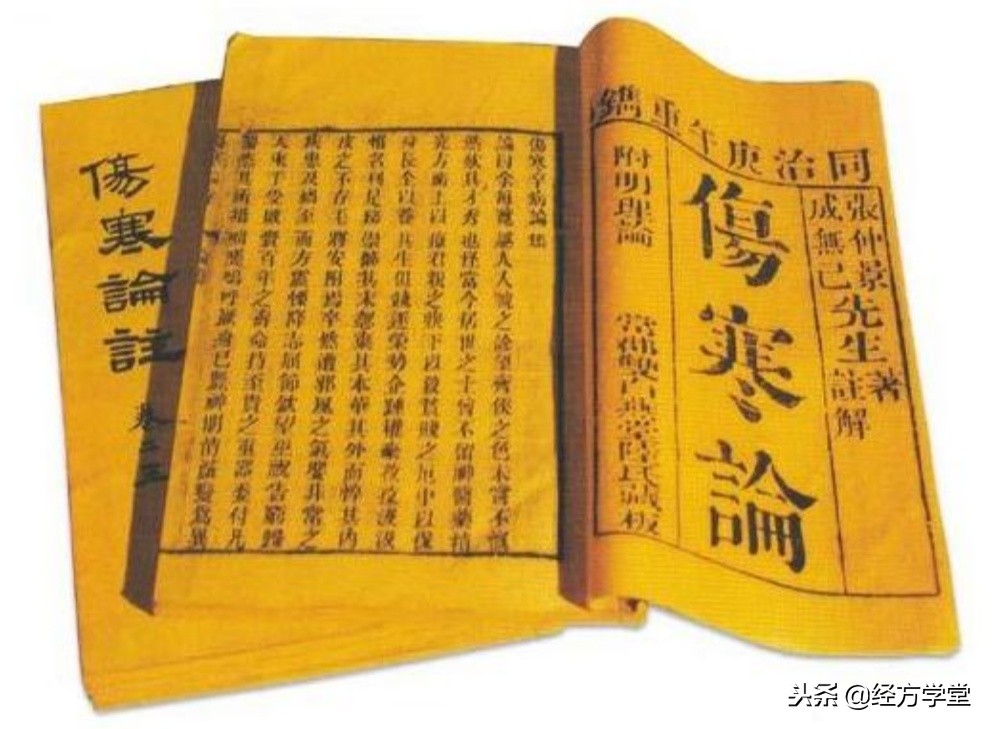 同治庚午重鐫
張仲景
成無己
先生
著
註解
傷寒論
附明理論
雙白燕堂陸氏藏板
傷寒卒病論集
論曰余每覽越人入虢之診望齊侯之色未嘗不慨
然歎其才秀也怪當今居世之士曾不留神醫藥精
究方術上以療君親之疾下以救貧賤之厄中以保
身長全以養其生但競逐榮勢企踵權豪孜孜汲汲
惟名利是務崇飾其末忽棄其本華其外而悴其內
皮之不存毛將安附焉卒然遭邪風之氣嬰非常之
疾患及禍至而方震慄降志屈節欽望巫祝告窮歸
天束手受敗賫百年之壽命持至貴之重器委付凡
醫恣其所措咄嗟嗚呼厥身已斃神明消滅變為異
傷寒論註
卷二三
头条 @经方学堂